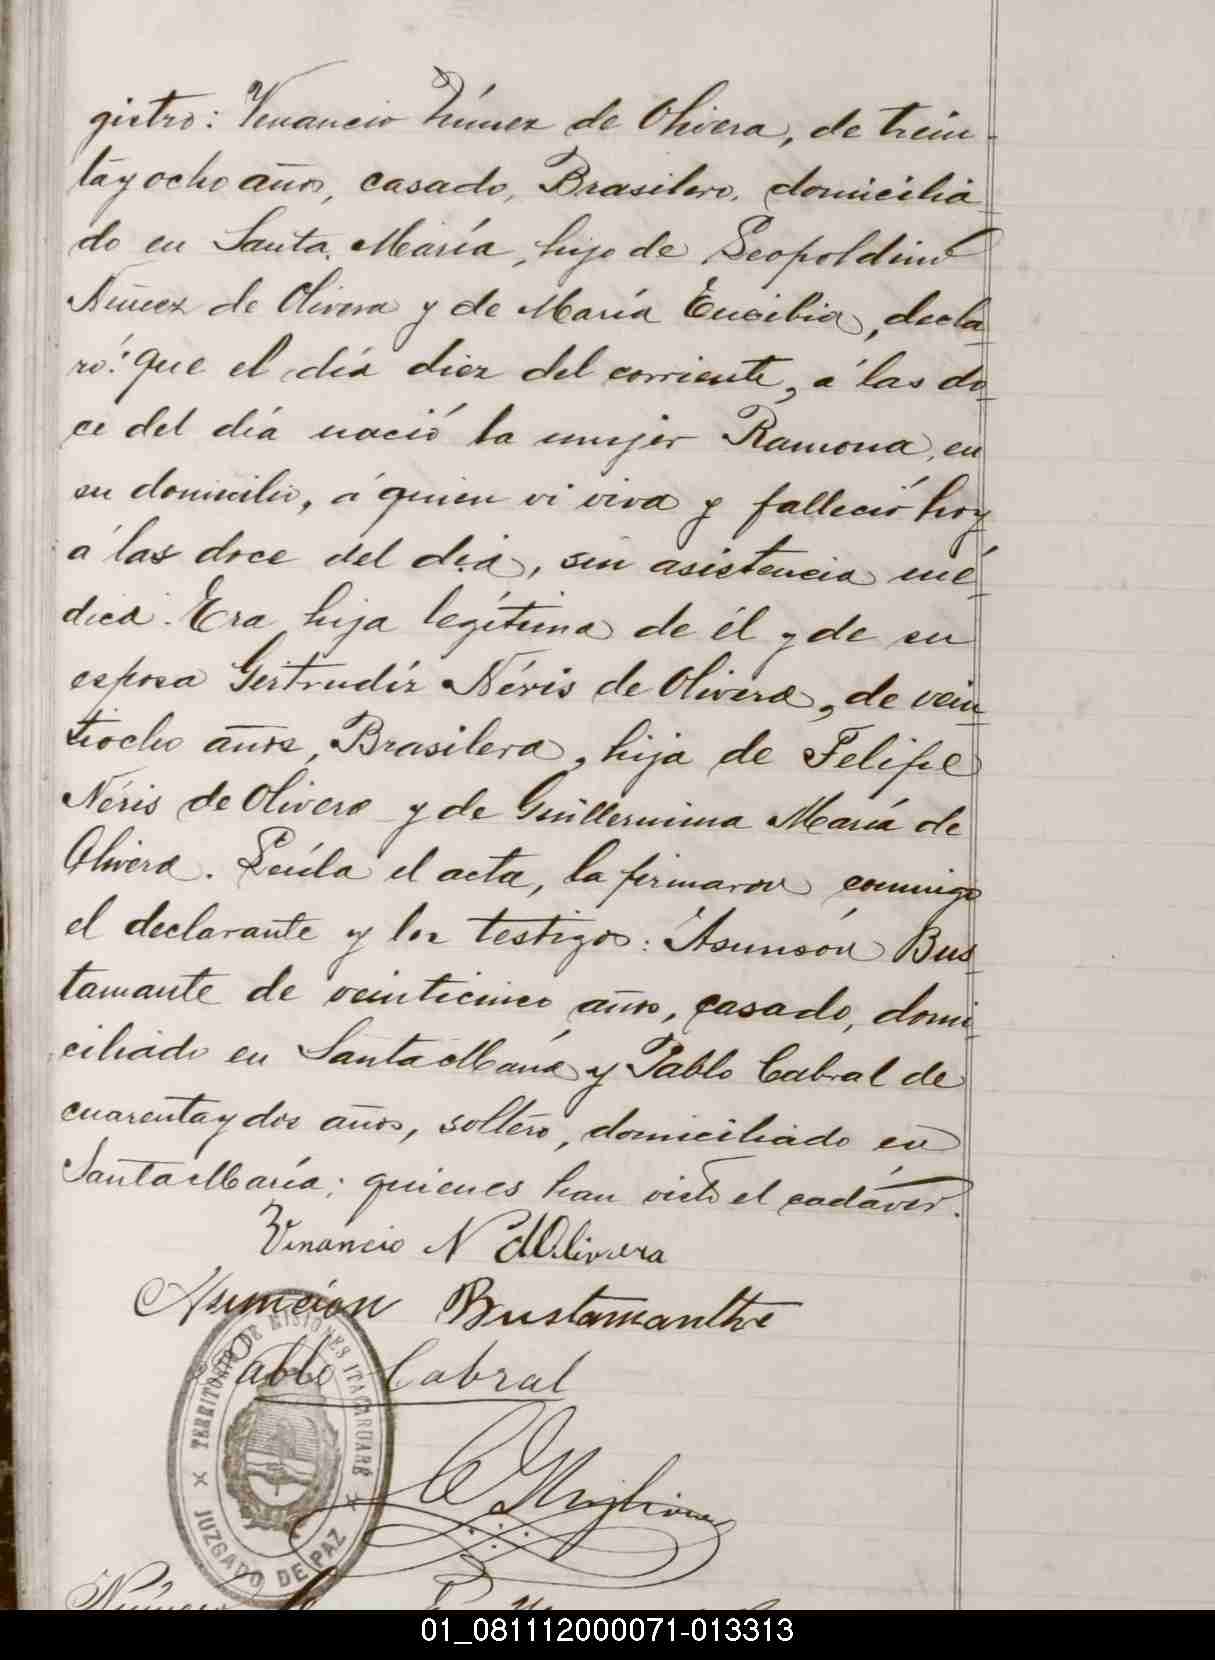 gistro: Venancio Núnez de Olivera, de trein-
tayocho años, casado, Brasilero, domicilia-
do en Santa María, hijo de Leopoldino
Núñez de Olivera y de María Eucibia, decla-
ró: que el día diez del corriente, á las do-
ce del día nació la mujer Ramona, en
su domicilio, á quien vi viva y falleció hoy
á las doce del dia, sin asistencia mé-
dica. Era hija legítima de él y de su
esposa Gertrudiz Néris de Olivera, de vein-
tiocho años, Brasilera, hija de Felipe
Néris de Olivera y de Guillermina María de
Olivera. Leída el acta, la firmaron conmigo
el declarante y los testigos: Asunsón Bus-
tamante de veinticinco años, casado, domi-
ciliado en Santa María y Pablo Cabral de
cuarentaydos años, soltero, domiciliado en
Santa María; quienes han visto el cadáver.
Venancio N dOlivera
Asuncion Bustamanthe
Pablo Cabral
TERRITORIO DE MISIONES ITACARUARÉ
JUZGADO DE PAZ
Número
01_081112000071-013313